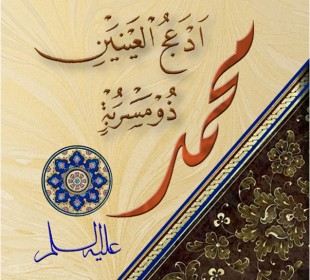 اَدْعَجُ الْعَيْنَيْنِ
ذُو مَسْرُبَةٍ
محمد
عليه السلام